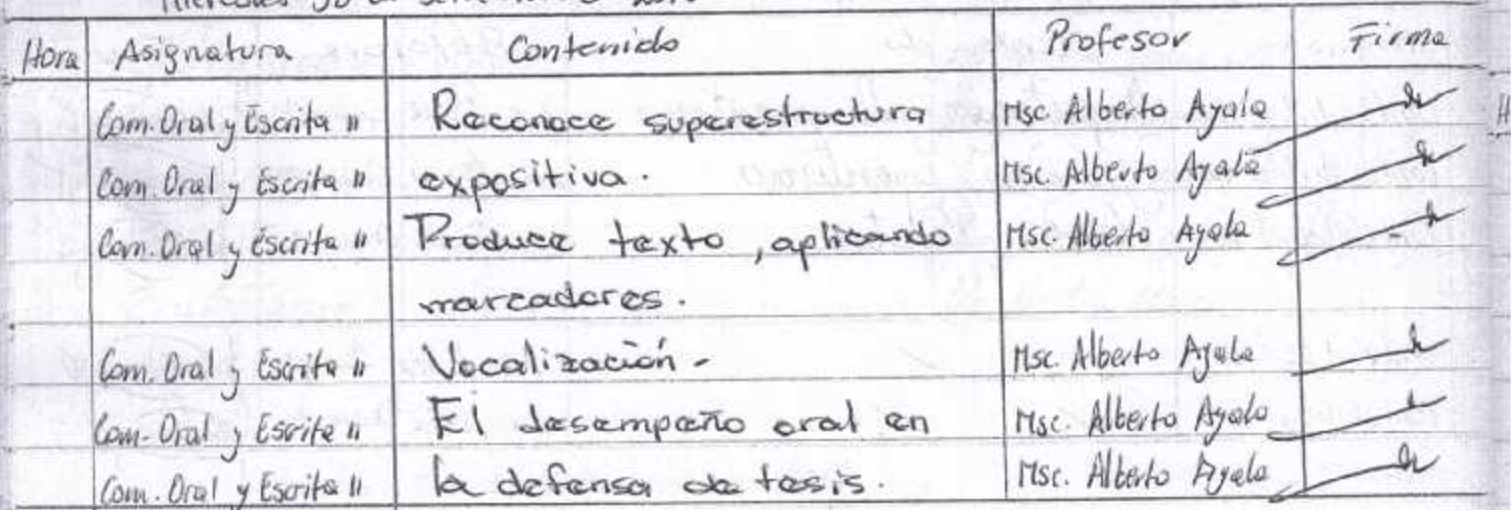 Hora Asignatura Contenido Profesor Firma
Com. Oral y Escrita II Reconoce superestructura Msc Alberto Ayala
Com. Oral y Escrita II expositiva. Msc. Alberto Ayala
Com. Oral y Escrita II Produce texto, aplicando Msc. Alberto Ayala
marcadores.
Com. Oral y Escrita II Vocalización - Msc. Alberto Ayala
Com. Oral y Escrita II El desempeño oral en Msc. Alberto Ayala
Com. Oral y Escrita II la defensa de tesis. Msc. Alberto Ayala